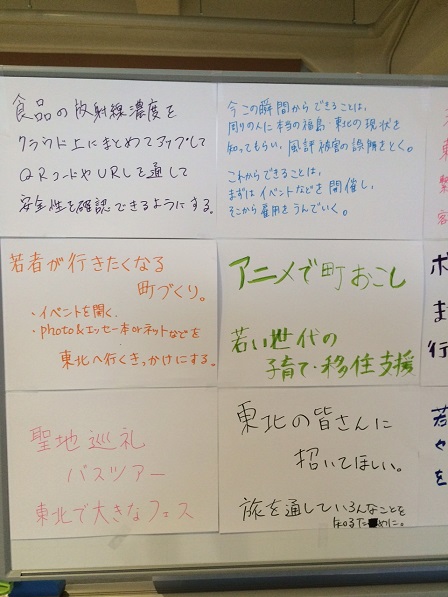 食品の放射線濃度を
クラウド上にまとめてアップして
QRコードやURLを通して
安全性を確認できるようにする。
今この瞬間からできることは、
周りの人に本当の福島・東北の現状を
知ってもらい、風評被害の誤解をとく。
これからできることは、
まずはイベントなどを開催し、
そこから雇用をうんでいく。
若者が行きたくなる
町づくり。
・イベントを開く、
・photo&エッセー本orネットなどを
東北へ行くきっかけにする。
アニメで町おこし
若い世代の
子育て・移住支援
聖地巡礼
バスツアー
東北で大きなフェス
東北の皆さんに
招いてほしい。
旅を通していろんなことを
知るために。
ボ
ま
行
若
や
を